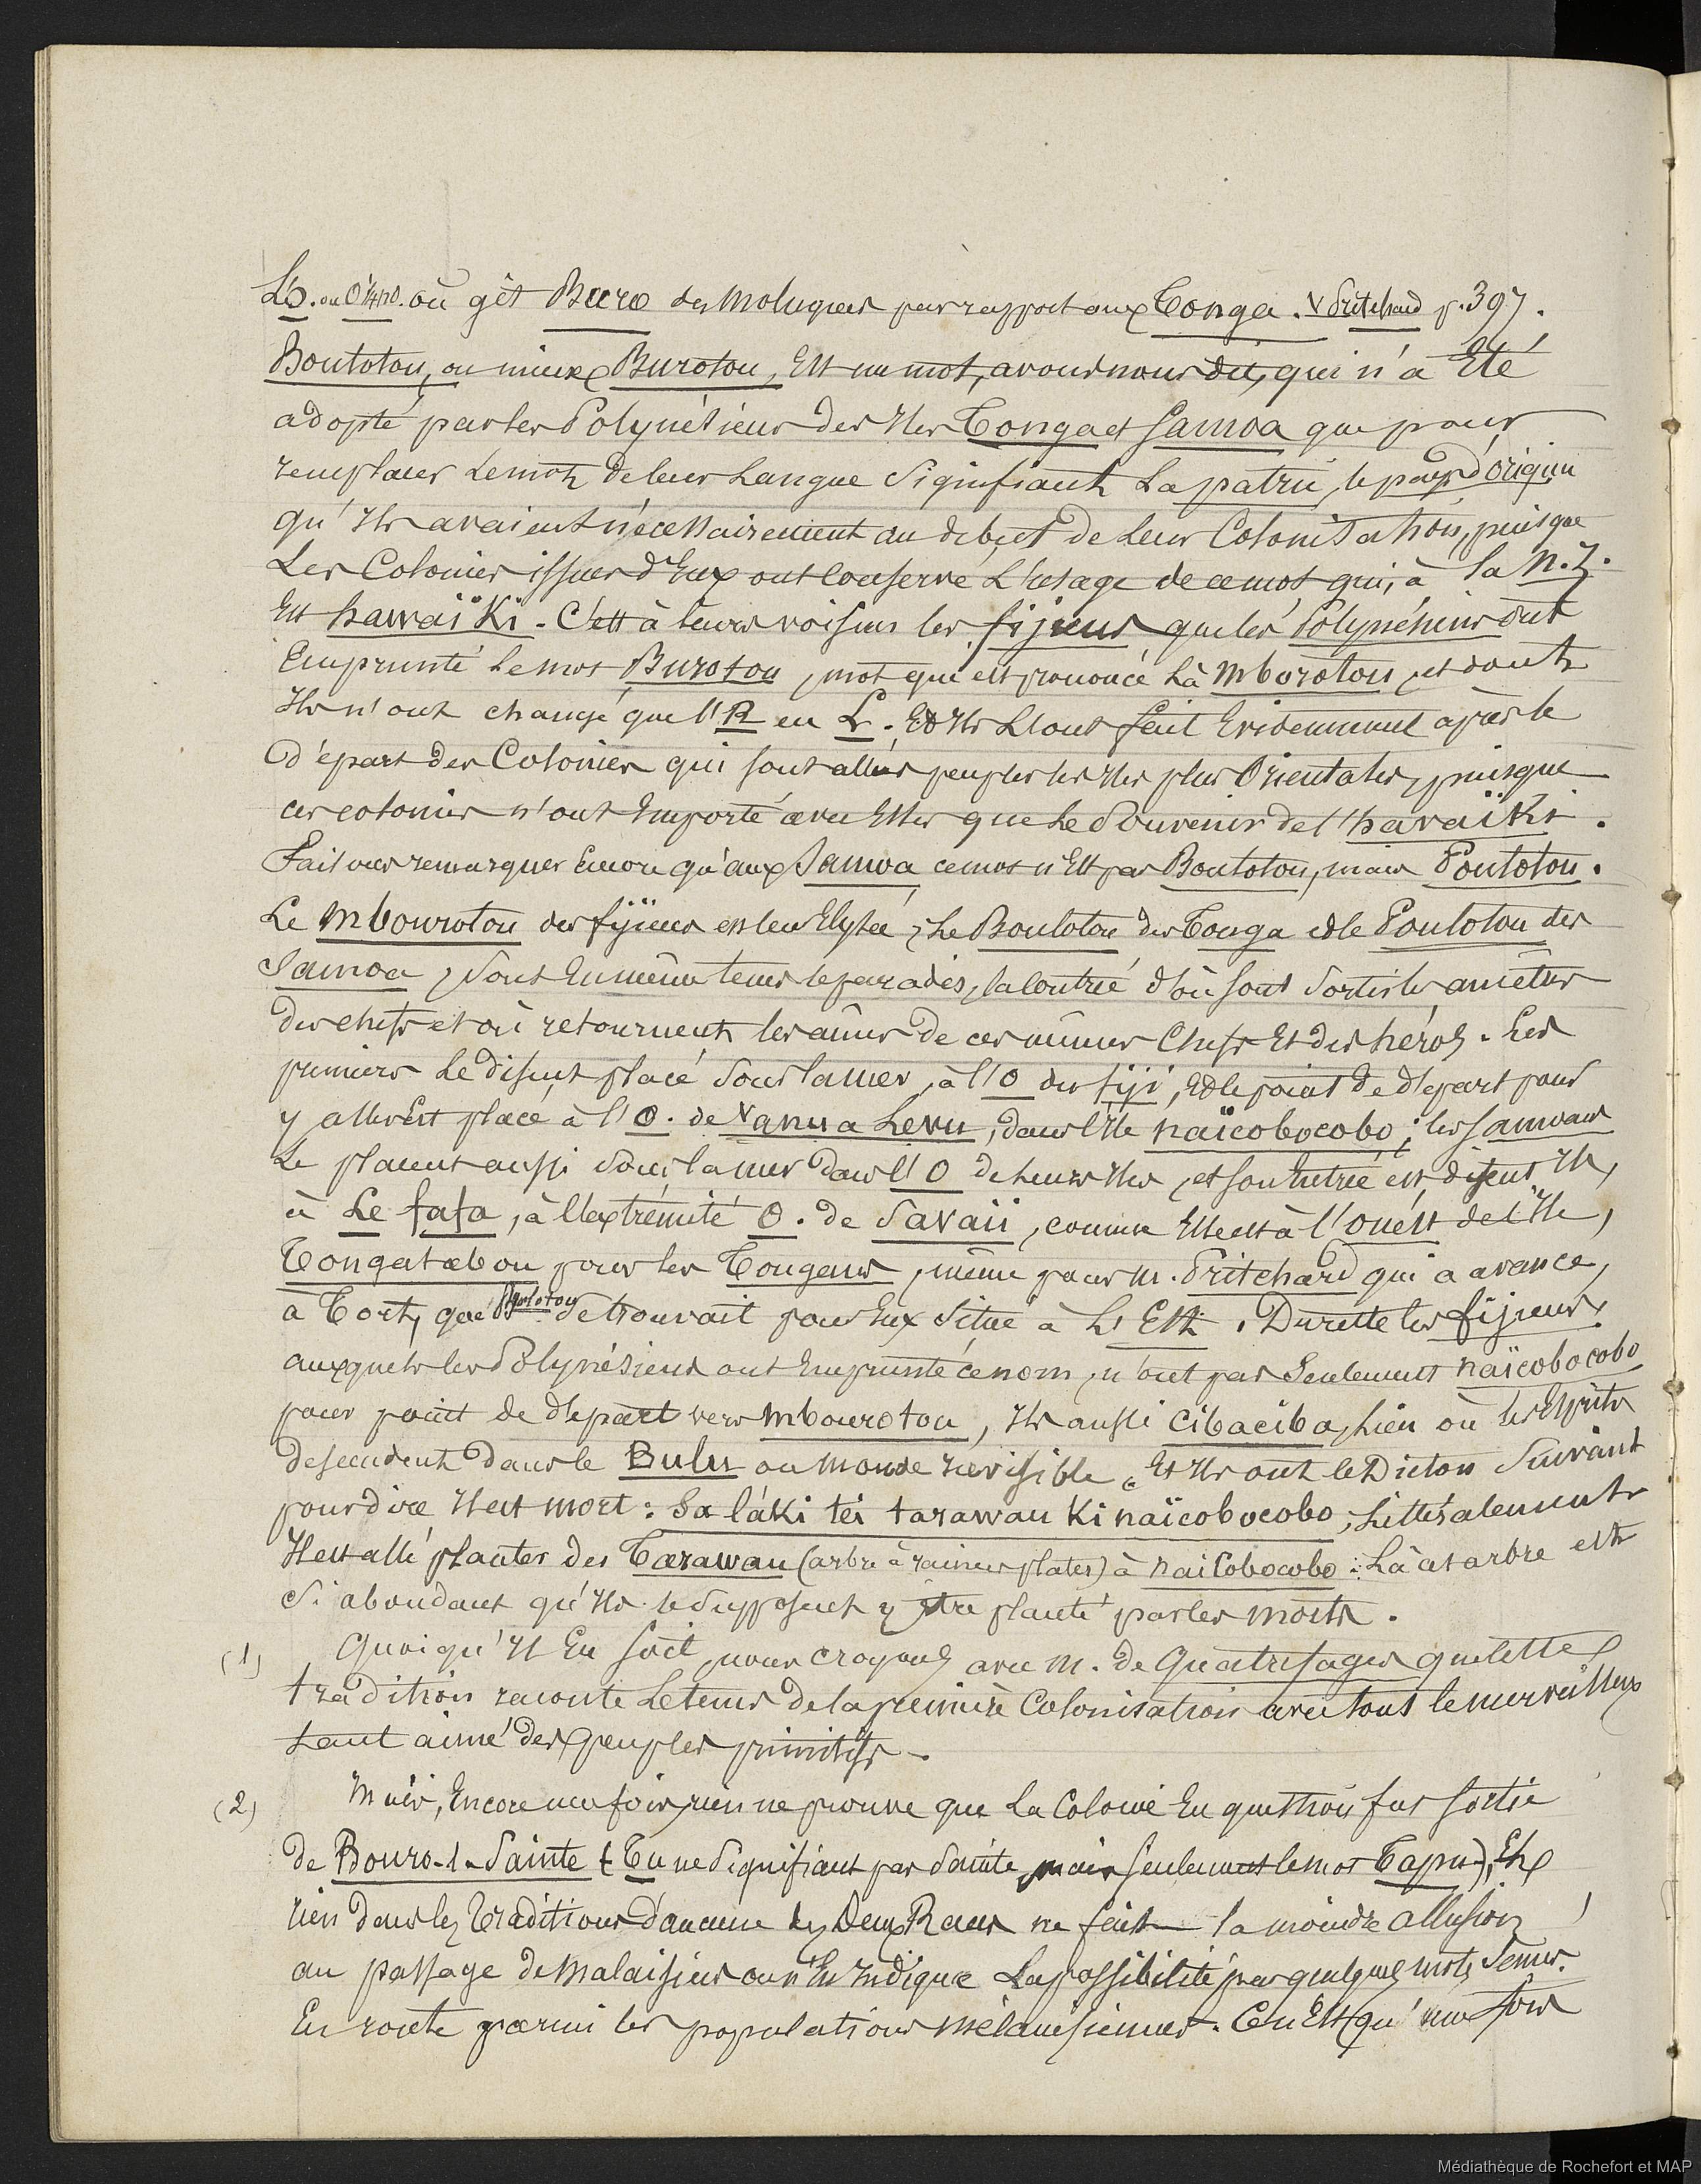 L'O. ou O ¼ NO. où gît Buro des Moluques par rapport aux Tonga. V Pritchard p. 397.
Boulotou, ou mieux Burotou, Est un mot, avons nous dit, qui n'a Eté
adopté par les Polynésiens des Iles Tonga et Samoa que pour
remplacer le mot de leur Langue Signifiant La patrie, le pays d'origine
qu'Ils avaient nécessairement au début de leur Colonisation, puisque
Les Colonies issues d'Eux ont conservé L'usage de ce mot qui, à la N. Z.
Est hawaïki. C'est à leurs voisins les fijiens que les Polynésiens ont
Emprunté le mot Burotou, mot qui est prononcé là mburotou, et dont
Ils n'ont changé que l'R en L. Et Ils L'ont fait Evidemment après le
départ des Colonies qui sont allées peupler les Iles plus Orientales, puisque
ces colonies n'ont Emporté avec Elles que le Souvenir de l'havaïki.
Faisons remarquer Encore qu'aux Samoa ce mot n'Est pas Boulotou, mais Poulotou.
Le mbourotou des fijiens est leur Elysée ; Le Boulotou des Tonga et le Poulotou des
Samoa, sont En même tems le paradis, la contrée d'où sont sortis les ancêtres
des chefs et où retournent les âmes de ces mêmes Chefs Et des héros. Les
premiers Le disent placé sous la mer, à l'O des fiji, Et le point de départ pour
y aller Est placé à l'O. de Vanua Levu, dans l'Ile naïcobocobo ; les Samoans
Le placent aussi sous la mer dans l'O de leurs Iles, et son Entrée est, disent Ils,
à Le fafa, à l'extrémité O. de Savaii, comme Elle est à l'ouest de l'Ile
Tongatabou pour les Tongans, même pour M. Pritchard qui a avancé,
à Tort, que Bulotou se trouvait pour Eux Situé à L'Est. Du reste les fijiens,
auxquels les Polynésiens ont Emprunté ce nom, n'ont pas Seulement naïcobocobo
pour point de départ vers mbourotou, Ils aussi Cibaciba, Lieu où les Esprits
descendent dans le Bulu ou Monde Invisible. Et Ils ont le Dicton Suivant
pour dire Il est mort : Sa láki téi tarawau ki naïcobocobo, Littéralement
Il est allé planter des Tarawau (arbre à racines plates) à naïcobocobo : Là cet arbre est
si abondant qu'Ils le Supposent y être planté par les morts.
(1) Quoiqu'Il En soit, nous croyons avec M. de Quatrefages que cette
tradition raconte Le tems de la première Colonisation avec tout le merveilleux
tant aimé des peuples primitifs.
(2) Mais, Encore une fois, rien ne prouve que La Colonie En question fut sortie
de Bouro-la-Sainte (Tu ne Signifiant pas Sainte, mais seulement le mot Tapu), Et
rien dans les Traditions d'aucune des Deux Races ne fait la moindre allusion
au passage de Malaisiens ou n'En Indique La possibilité par quelques mots Semés
En route parmi les populations mélanésiennes. Ce n'Est qu'une fois